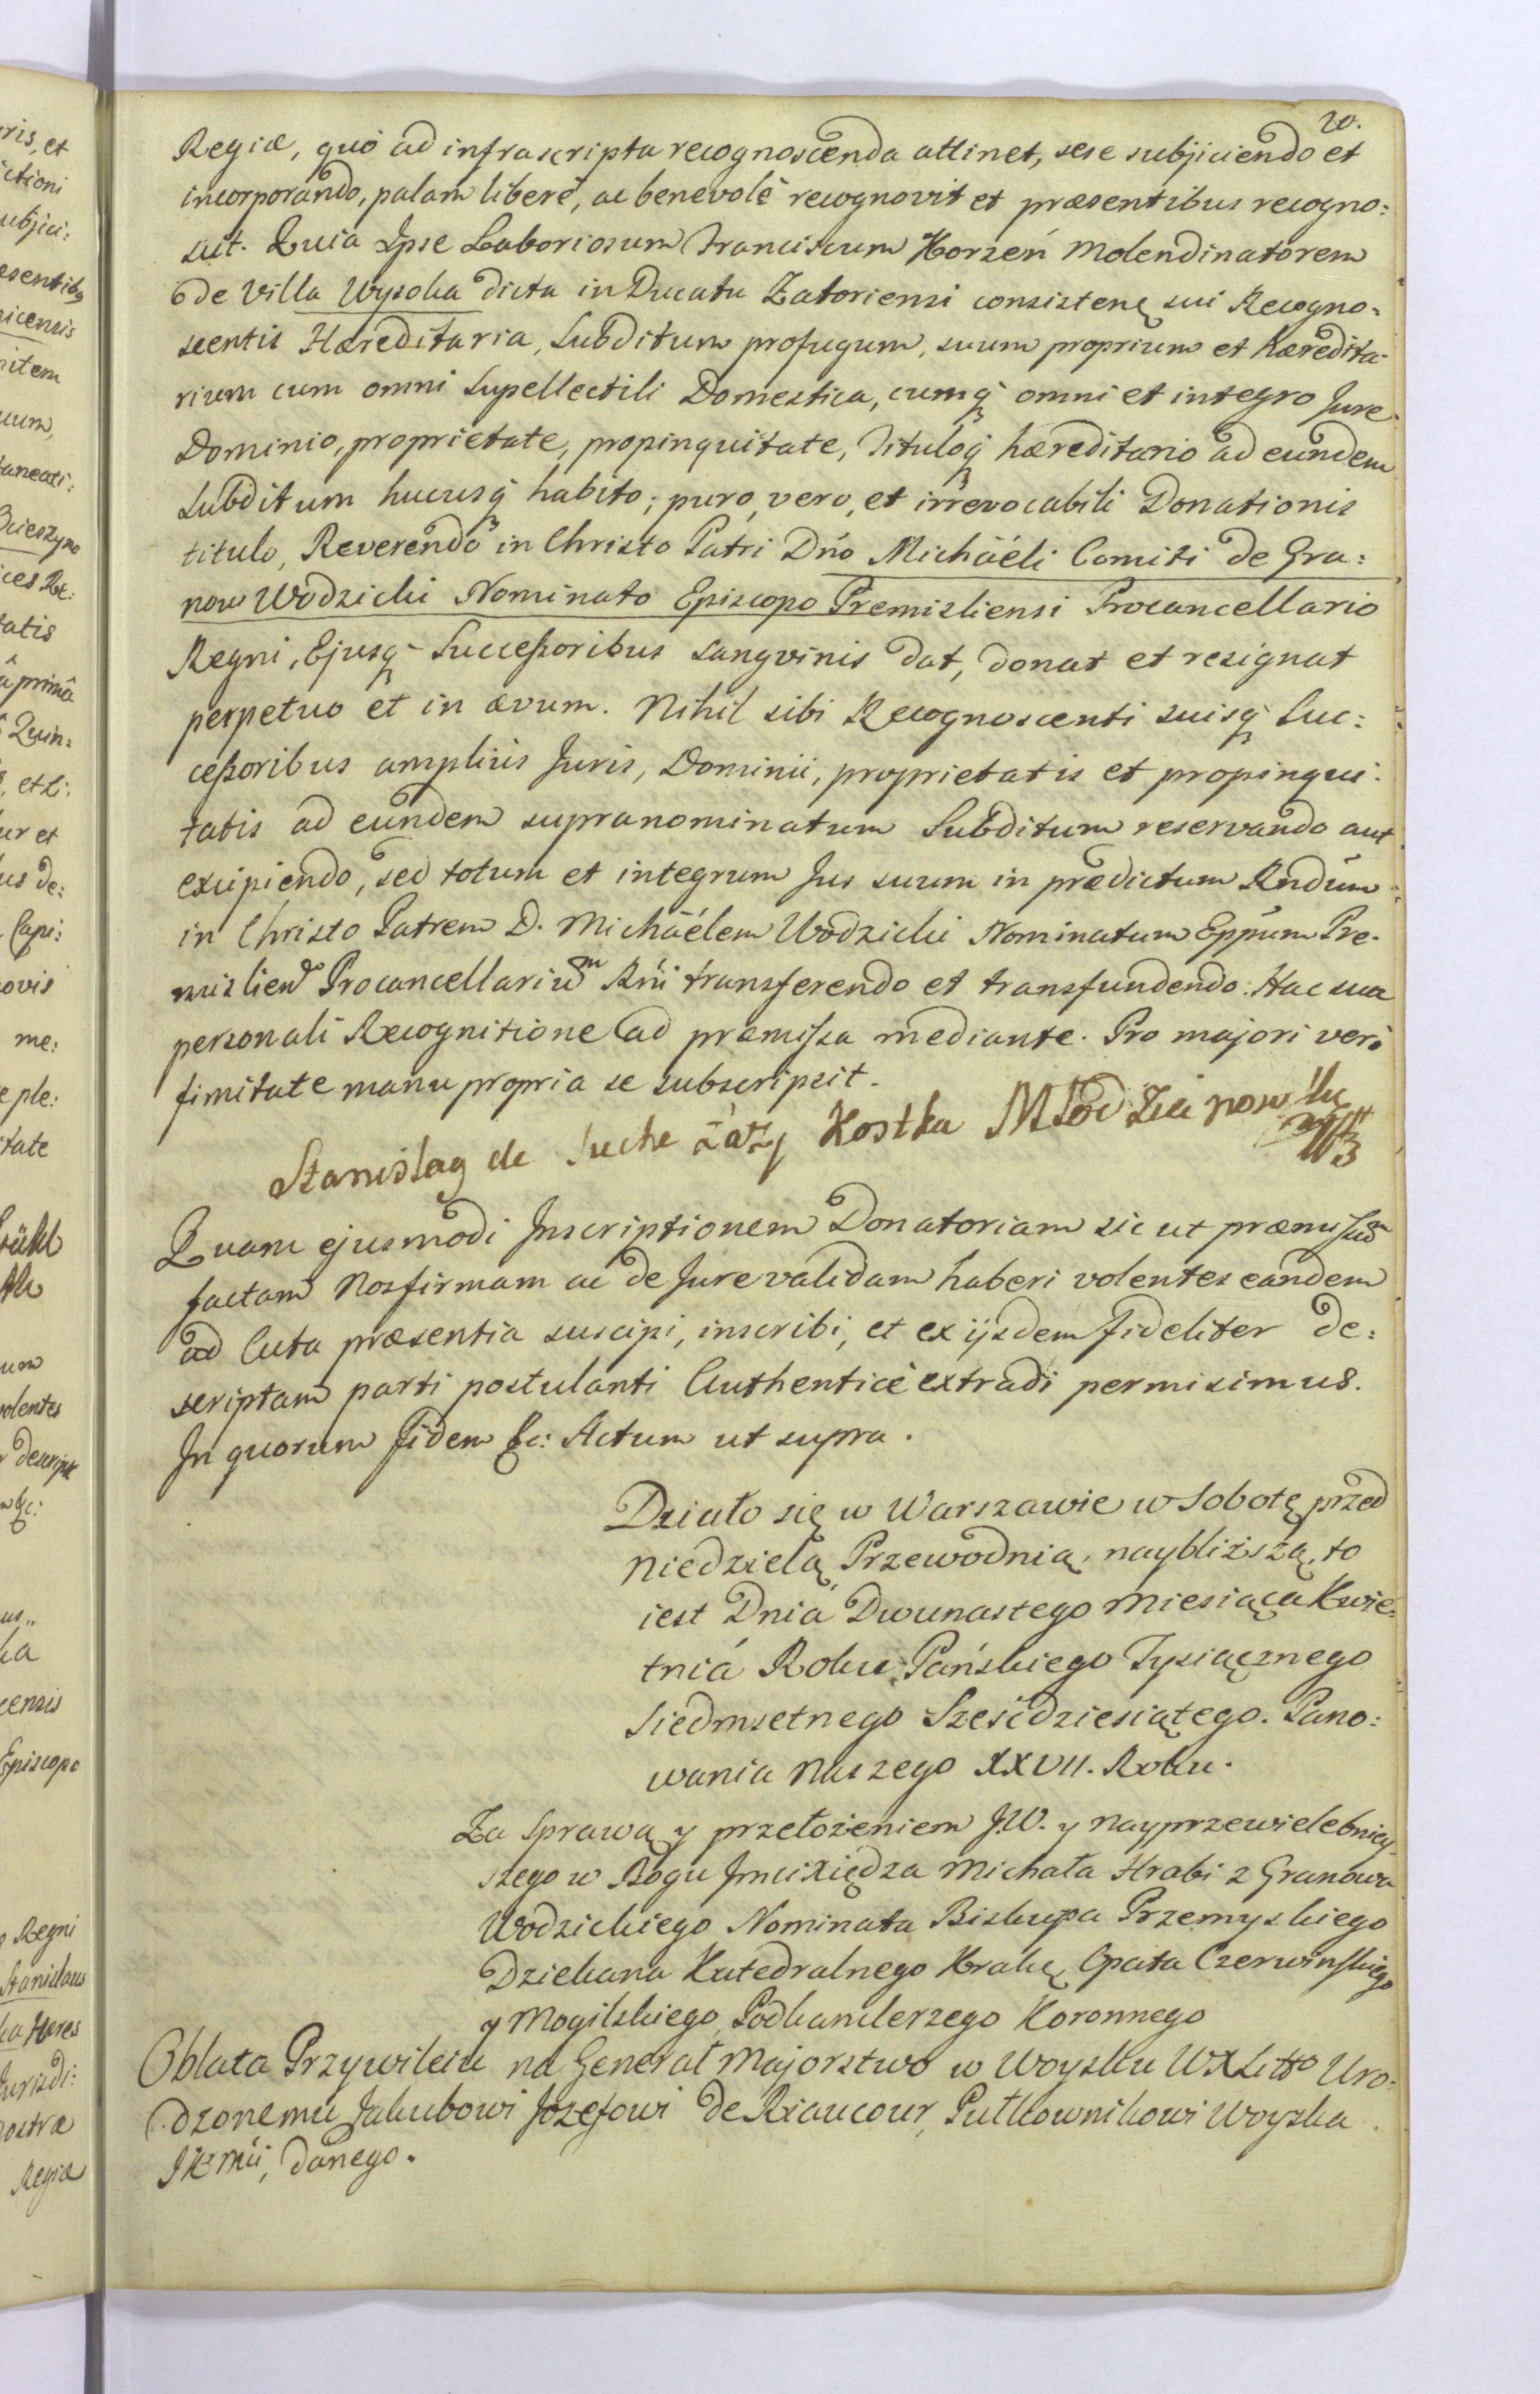 20.
Regiæ, quó ad infrascripta recognoscenda attinet, sese subjiciendo et
incorporando, palam liberé, ac benevolé recognovit et præsentibus recogno:
scit. Quia Ipse Laboriosum Franciscum Korzeń Molendinatorem
de Villa Wysoka dicta in Ducatu Zatoriensi consisten̨ sui Recogno:
scentis Hæreditaria, Subditum profugum, suum proprium et hæredita:
rium cum omni Supellectili Domestica, cumq̃ omni et integro Jure
Dominio, proprietate, propinquitate, Tituloq̃ hæreditario ad eundem
Subditum hucusq̃ habito; puro, vero, et irrevocabili Donationis
titulo, Reverendo in Christo Patri Dño Michäéli Comiti de Gra:
now Wodzicki Nominato Episcopo Premisliensi Procancellario
Regni, Ejusq̃ Succeßoribus Sangvinis dat, donat et resignat
perpetuo et in ævum. Nihil sibi Recognoscenti suisq̃ Suc:
ceßoribus ampliùs Juris, Dominii, proprietatis et propinqui:
tatis ad eundem supranominatum Subditum reservando aut
excipiendo, sed totum et integrum Jus suum in prædictum Rndūm
in Christo Patrem D. Michäélem Wodzicki Nominatum Eppūm Pre:
mislien̄ Procancellariūm Rñi transferendo et transfundendo. Hac sua
personali Recognitione ad præmißa mediante. Pro majori verò
firmitate manu propria se subscripsit.
Stanislaꝯ de Suche Łazy Kostka Młodzianowsky
Quam ejusmodi Inscriptionem Donatoriam sic ut præmißū
factam Nos firmam ac de Jure validam haberi volentes eandem
ad Acta præsentia suscipi, inscribi, et ex ijsdem fideliter de:
scriptam parti postulanti Authenticè extradi permisimus.
In quorum fidem &c: Actum ut supra.
Działo się w Warszawie w Sobotę przed
Niedzielą Przewodnią, naybliższą, to
iest Dnia Dwunastego Miesiąca Kwie:
tniá Roku Pańskiego Tysiącznego
Siedmsetnego Sześćdziesiątego. Pano:
wania Naszego XXVII. Roku.
Za Sprawą y przełożeniem J.W. y Nayprzewielebniey
szego w Bogu Jmci Xiędza Michała Hrabi z Granowa
Wodzickiego Nominata Biskupa Przemyskiego
Dziekana Katedralnego Krakꝫ Opata Czerwinskiego
y Mogilskiego, Podkanclerzego Koronnego
Oblata Przywileiu na Generał Majorstwo w Woysku WXLittō Uro:
dzonemu Jakubowi Józefowi de Riaucour, Pułkownikowi Woyska
JKMci, danego.